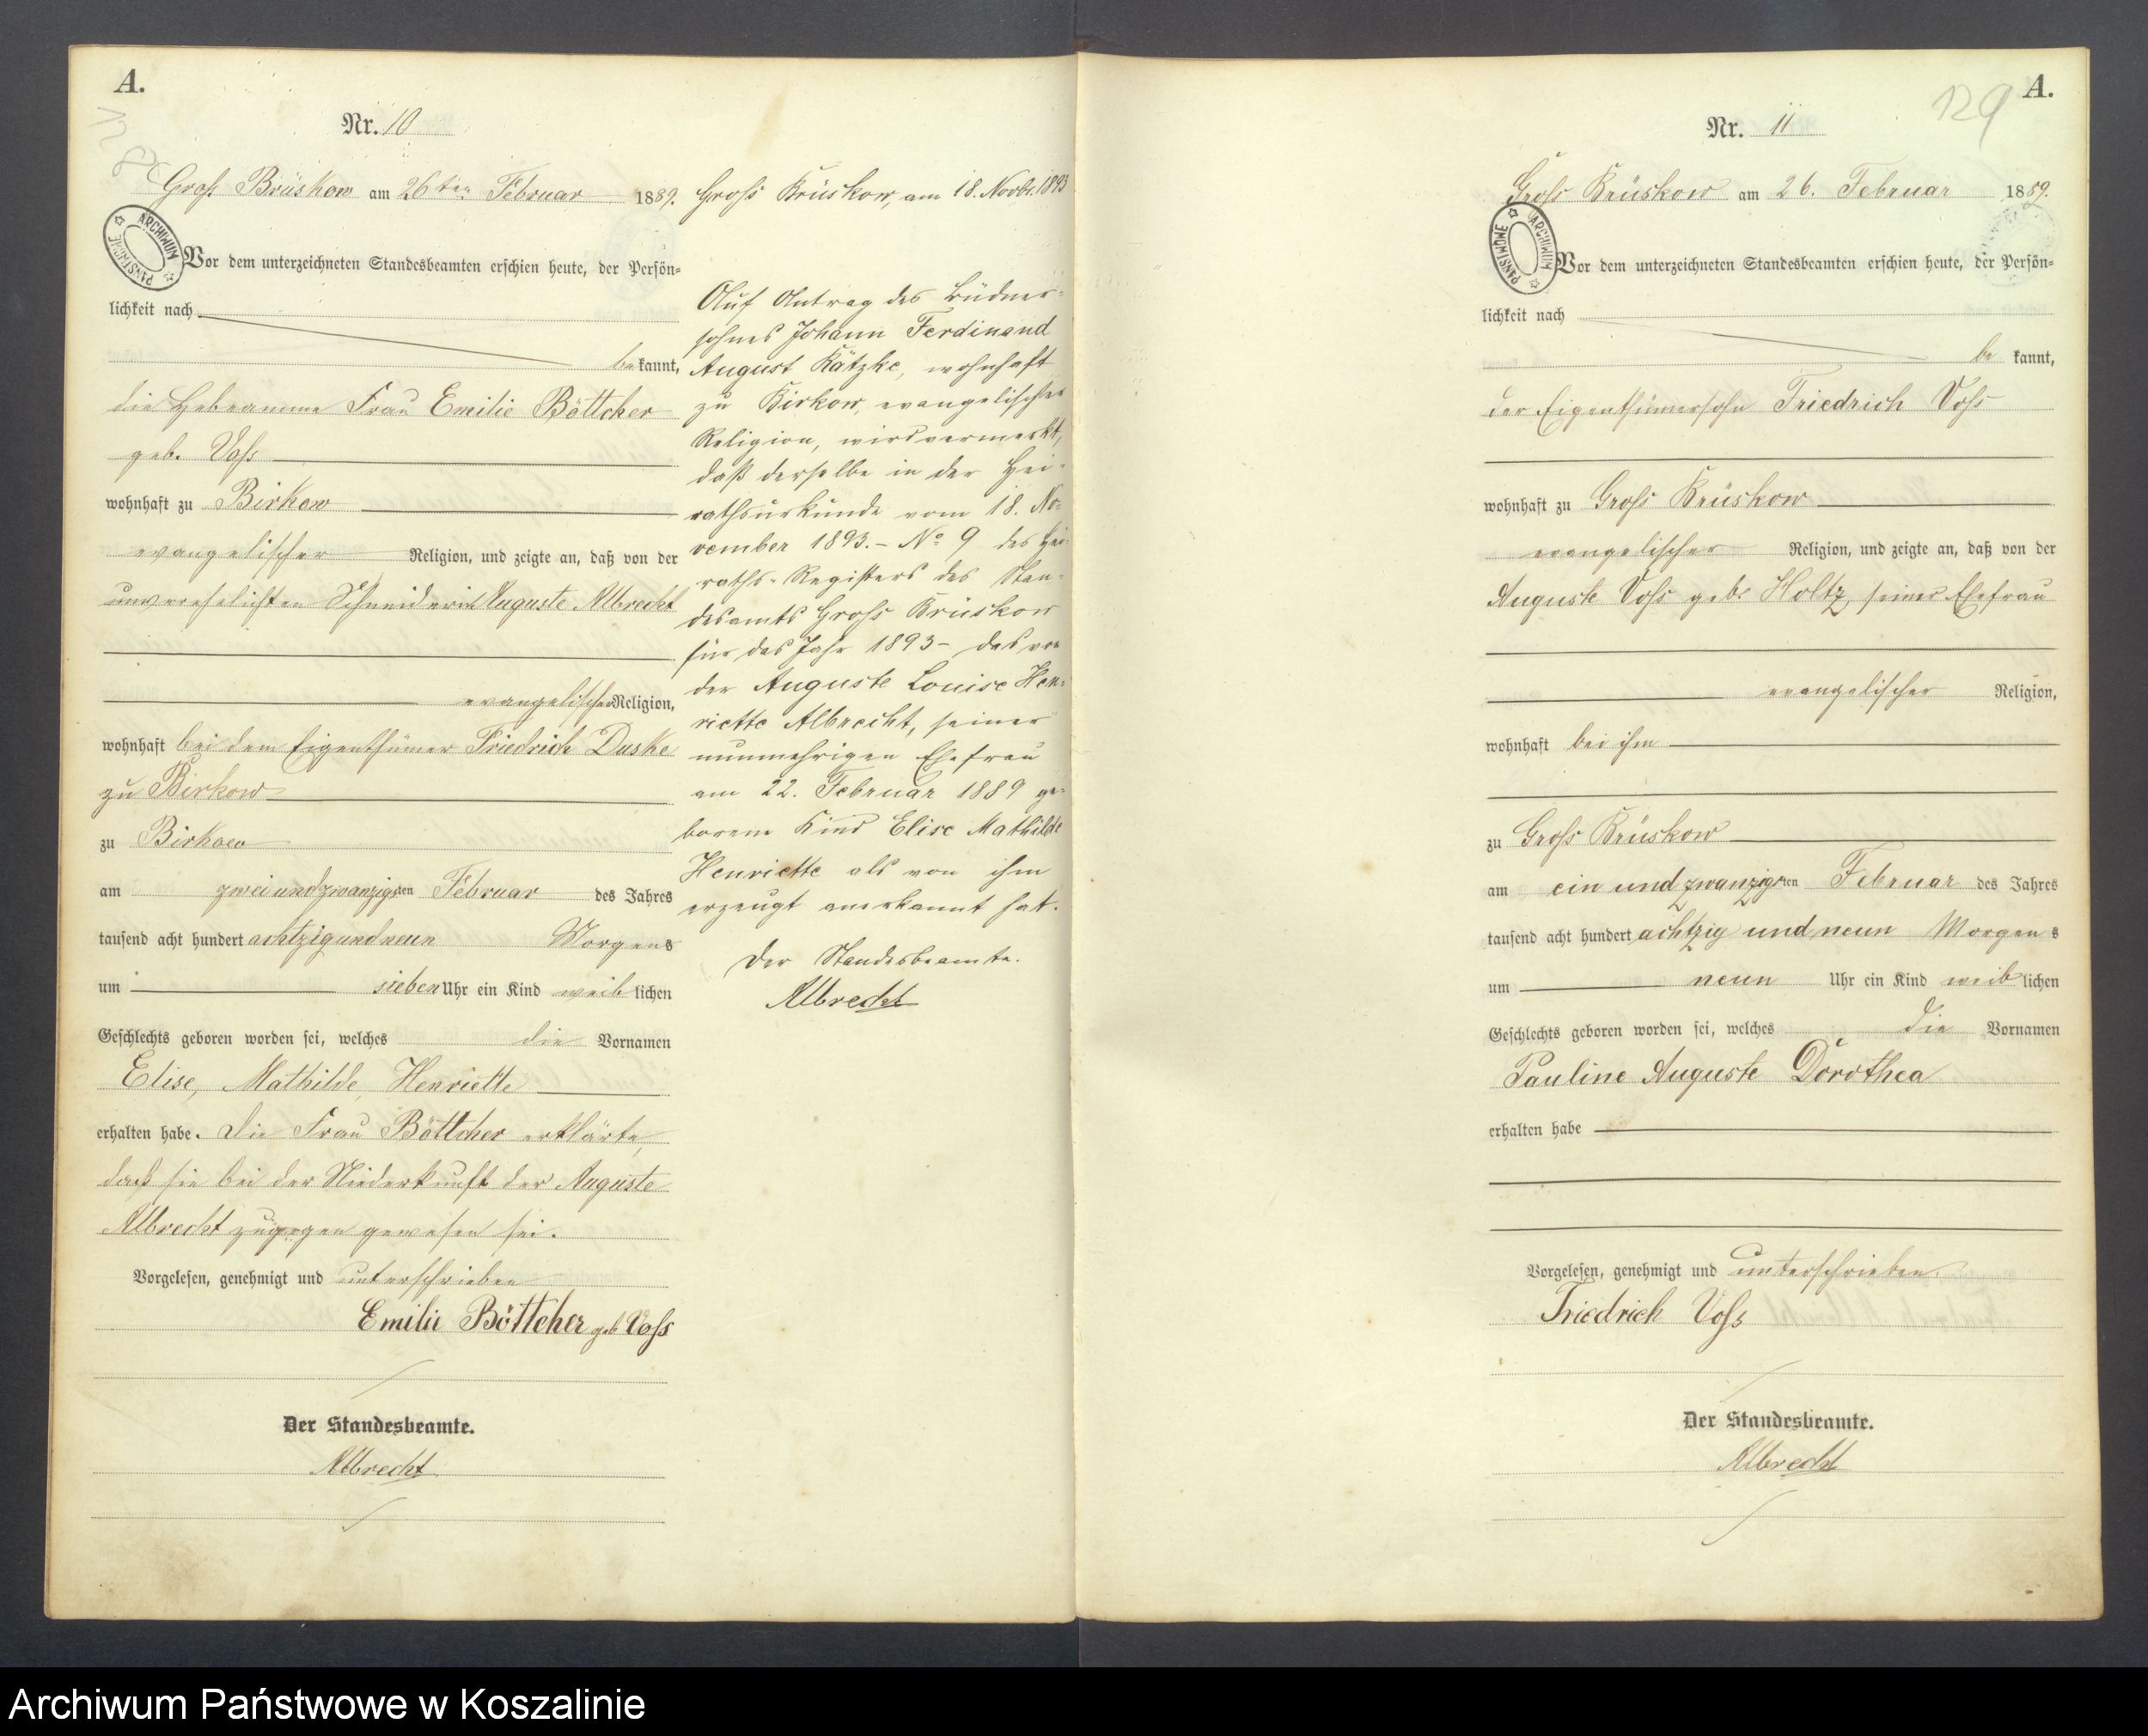 A.
Nr. 10
Groß Brüskow am 26ten Februar 1889.
ARCHIWUM PAŃSTWOWE
Vor dem unterzeichneten Standesbeamten erschien heute, der Persön=
lichkeit nach
bekannt,
die Hebeamme Frau Emilie Böttcher
geb. Voß
wohnhaft zu Birkow
evangelischer Religion, und zeigte an, daß von der
unverehelichten Schneiderin Auguste Albrecht
evangelischer Religion,
wohnhaft bei dem Eigenthümer Friedrich Duske
zu Birkow
zu Birkow
am zwei und zwanzigsten Februar des Jahres
tausend acht hundert achtzig und neun Morgens
um sieben Uhr ein Kind weiblichen
Geschlechts geboren worden sei, welches die Vornamen
Elise, Mathilde, Henriette
erhalten habe. Die Frau Böttcher erklärte,
daß sie bei der Niederkunft der Auguste
Albrecht zugegen gewesen sei.
Vorgelesen, genehmigt und unterschrieben
Emilie Böttcher geb Voß
Der Standesbeamte.
Albrecht
Groß Brüskow, am 18. Novbr. 1893
Auf Antrag des Büdner=
sohnes Johann Ferdinand
August Kätzke, wohnhaft
zu Birkow, evangelischer
Religion, wird vermerkt,
daß derselbe in der Hei=
rathsurkunde vom 18. No=
vember 1893.- No 9 des Hei=
raths-Registers des Stan=
desamts Groß Brüskow
für das Jahr 1893- das von
der Auguste Louise Hen=
riette Albrecht, seiner
nunmehrigen Ehefrau
am 22. Februar 1889 ge=
borene Kind Elise Mathilde
Henriette als von ihm
erzeugt anerkannt hat.
Der Standesbeamte.
Albrecht
129
A.
Nr. 11
Groß Brüskow am 26. Februar 1889.
ARCHIWUM PAŃSTWOWE
Vor dem unterzeichneten Standesbeamten erschien heute, der Persön=
lichkeit nach
bekannt,
der Eigenthümersohn Friedrich Voß
wohnhaft zu Groß Brüskow
evangelischer Religion, und zeigte an, daß von der
Auguste Voß geb. Holtz, seiner Ehefrau
evangelischer Religion,
wohnhaft bei ihm
zu Groß Brüskow
am ein und zwanzigsten Februar des Jahres
tausend acht hundert achtzig und neun Morgens
um neun Uhr ein Kind weiblichen
Geschlechts geboren worden sei, welches die Vornamen
Pauline Auguste Dorothea
erhalten habe
Vorgelesen, genehmigt und unterschrieben.
Friedrich Voß
Der Standesbeamte.
Albrecht
Archiwum Państwowe w Koszalinie